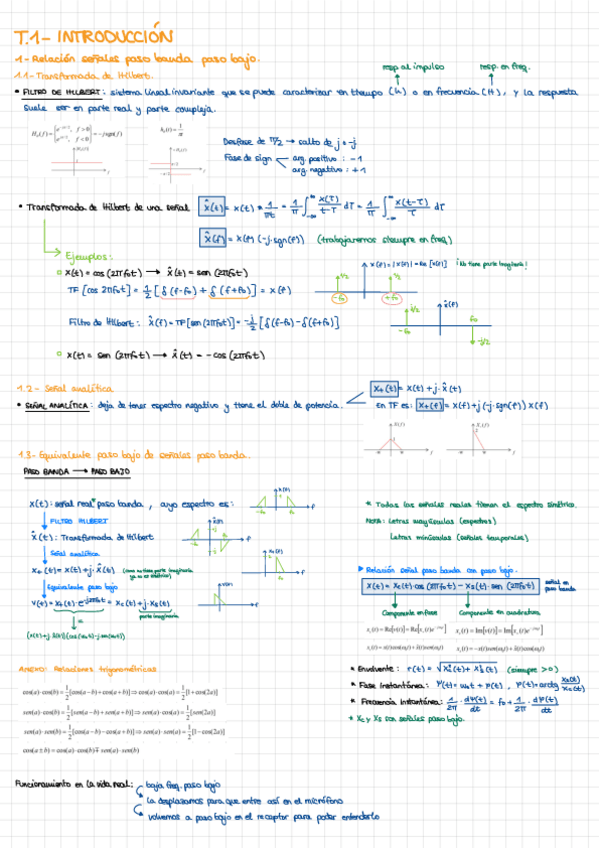 T.1- INTRODUCCIÓN
1- Relación señales paso banda paso bajo.
1.1- Transformada de Hilbert.
resp al impulso
resp. en freq.
• FILTRO DE HILBERT: sistema lineal invariante que se puede caracterizar en tiempo (h) o en frecuencia (H), y la respuesta
suele ser en parte real y parte compleja.
Desfase de π/2 → salto de j a -j
Fase de sign
arg. positivo : -1
arg. negativo : +1
• Transformada de Hilbert de una señal x̂(t) = x(t) * 1/πt = 1/π ∫ x(τ)/(t-τ) dτ = 1/π ∫ x(t-τ)/τ dτ
x̂(f) = x(f) (-j·sgn(f)) (trabajaremos siempre en freq)
Ejemplos:
x(t) = cos(2πf₀t) → x̂(t) = sen(2πf₀t)
x(f) = |x(f)| = Re[x(f)] ¡No tiene parte imaginaria!
TF[cos 2πf₀t] = 1/2 [δ(f-f₀) + δ(f+f₀)] = x(f)
1/2
1/2
-f₀
+f₀
Filtro de Hilbert: x̂(f) = TF[sen(2πf₀t)] = -j/2 [δ(f-f₀) - δ(f+f₀)]
x̂(f)
j/2
-f₀
f₀
-j/2
x(t) = sen(2πf₀t) → x̂(t) = -cos(2πf₀t)
1.2- Señal analítica
x₊(t) = x(t) + j·x̂(t)
• SEÑAL ANALÍTICA: deja de tener espectro negativo y tiene el doble de potencia.
En TF es: x₊(f) = x(f) + j(-j·sgn(f)) x(f)
1.3- Equivalente paso bajo de señales paso banda.
PASO BANDA → PASO BAJO
x(t): señal real paso banda, cuyo espectro es:
FILTRO HILBERT
x̂(t): Transformada de Hilbert
Señal analítica
x₊(t) = x(t) + j·x̂(t)
Equivalente paso bajo
v(t) = x₊(t)·e^-j2πf₀t = x_c(t) + j·x_s(t)
parte imaginaria
* Todas las señales reales tienen el espectro simétrico.
NOTA: Letras mayúsculas (espectros)
Letras minúsculas (señales temporales)
▷ Relación señal paso banda con paso bajo.
x(t) = x_c(t)·cos(2πf₀t) - x_s(t)·sen(2πf₀t)
señal en paso banda
Componente en fase
Componente en cuadratura
ANEXO: Relaciones trigonométricas
cos(a)·cos(b) = 1/2[cos(a-b)+cos(a+b)] ⇒ cos(a)·cos(a) = 1/2[1+cos(2a)]
sen(a)·cos(b) = 1/2[sen(a-b)+sen(a+b)] ⇒ sen(a)·cos(a) = 1/2[sen(2a)]
sen(a)·sen(b) = 1/2[cos(a-b)-cos(a+b)] ⇒ sen(a)·sen(a) = 1/2[1-cos(2a)]
cos(a±b) = cos(a)·cos(b) ∓ sen(a)·sen(b)
* Envolvente: r(t) = √(x_c²(t) + x_s²(t)) (siempre >0)
* Fase instantánea: Ψ(t) = ω₀t + φ(t), φ(t) = arctg x_s(t)/x_c(t)
* Frecuencia instantánea: 1/2π · dΨ(t)/dt = f₀ + 1/2π · dφ(t)/dt
* Xc y Xs son señales paso bajo.
Funcionamiento en la vida real:
baja freq. paso bajo
la desplazamos para que entre así en el micrófono
volvemos a paso bajo en el receptor para poder entenderlo